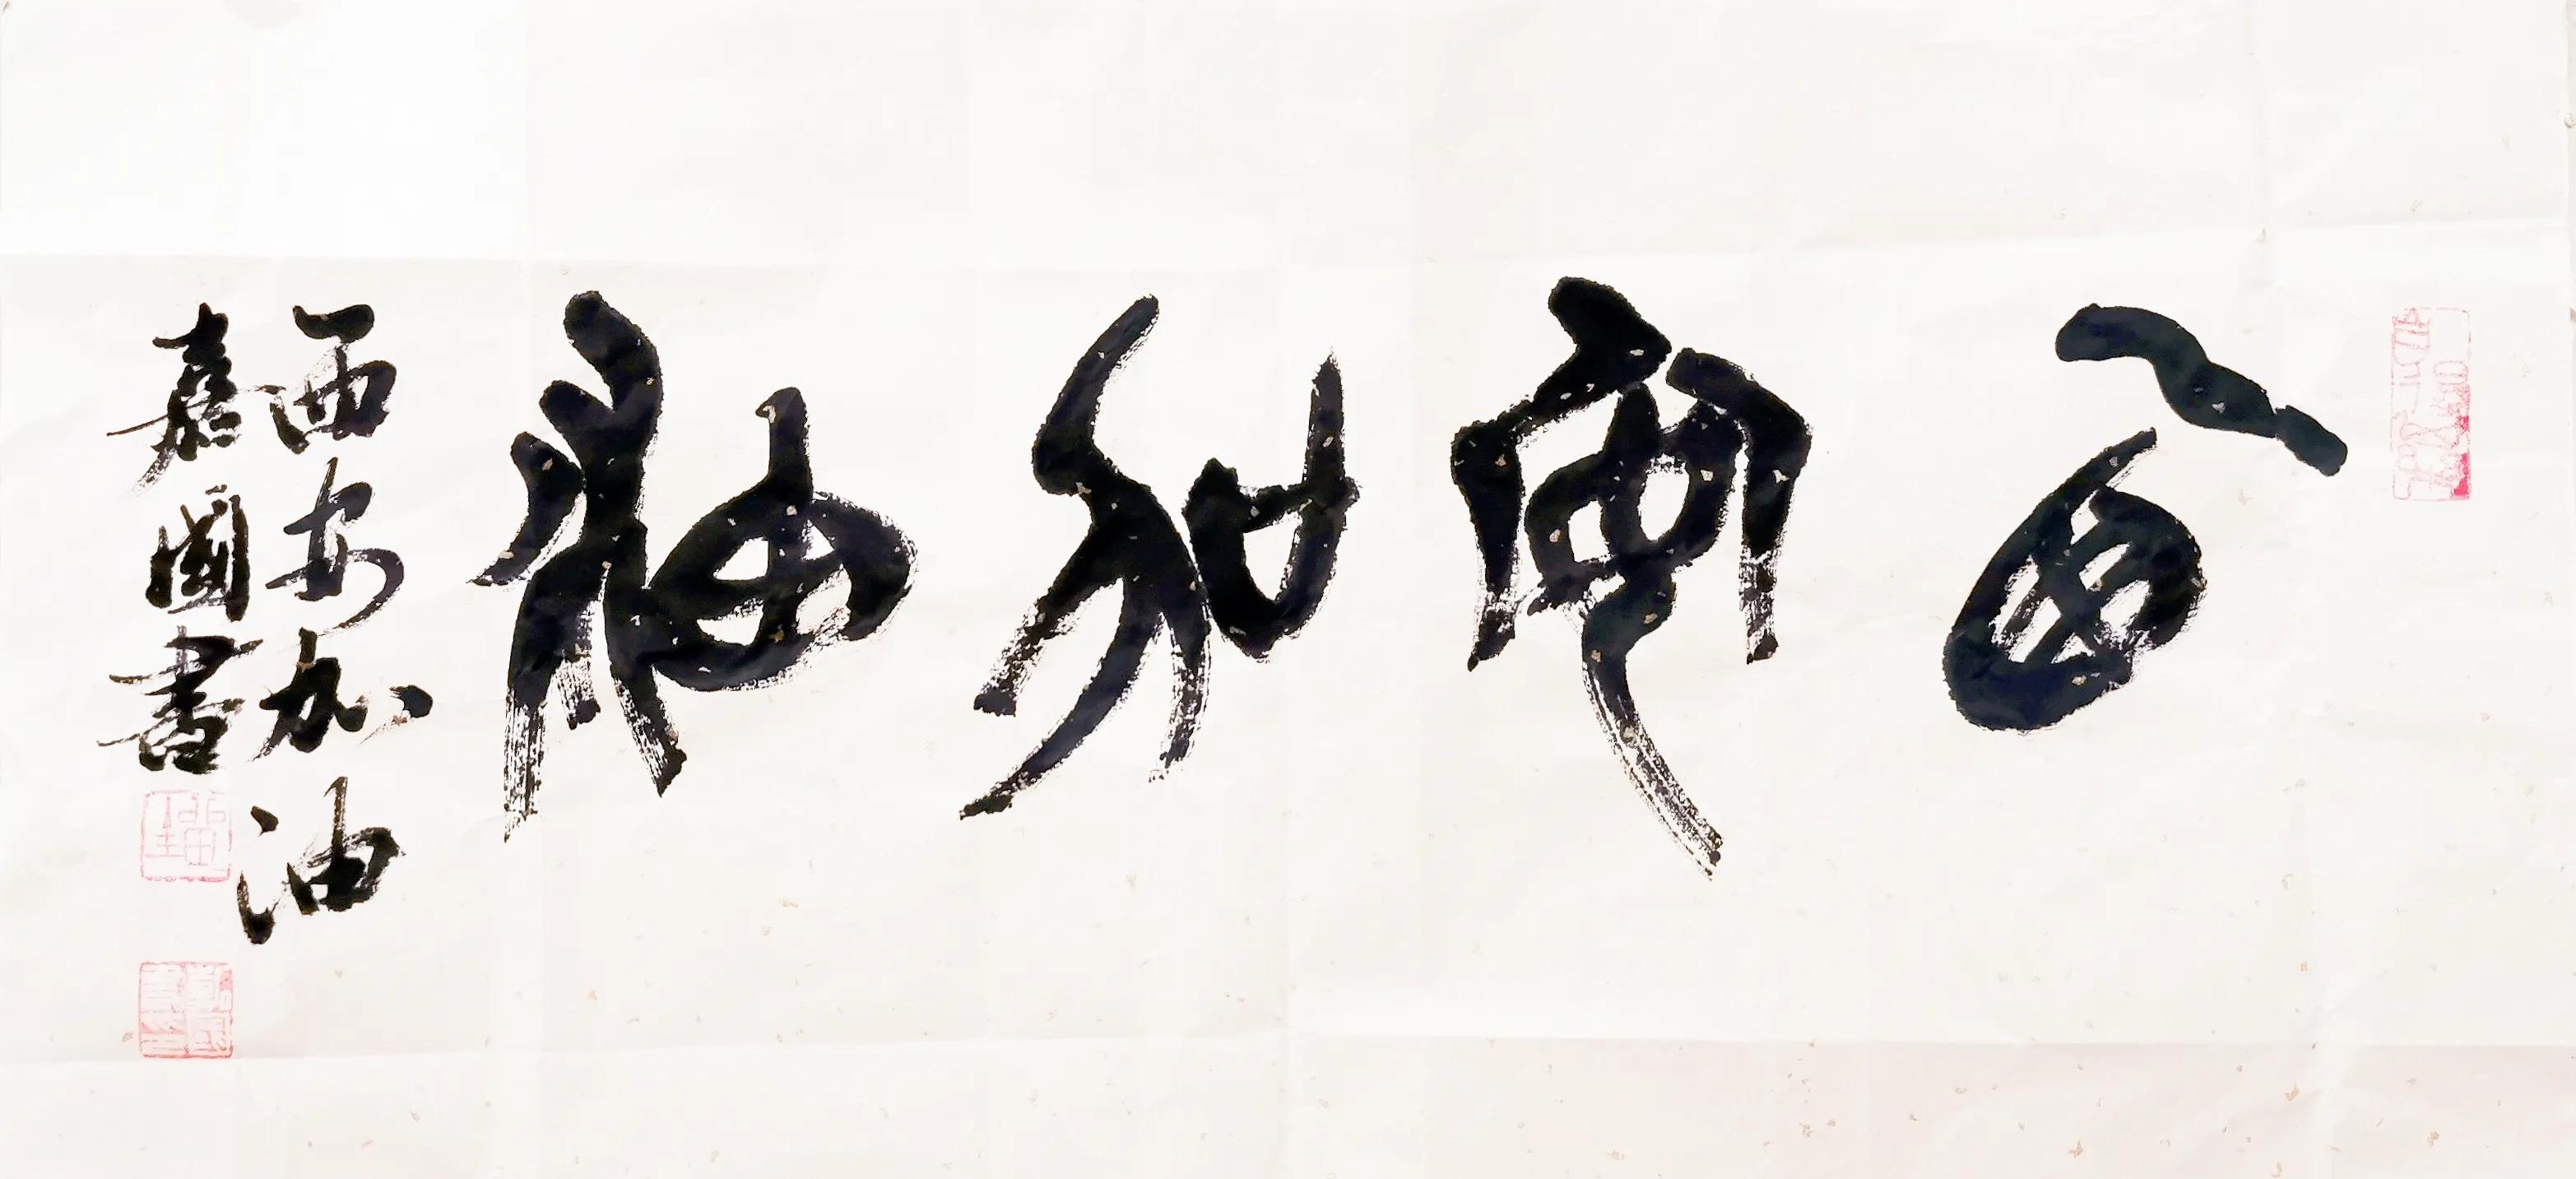 西安加油
西安加油
嘉國書